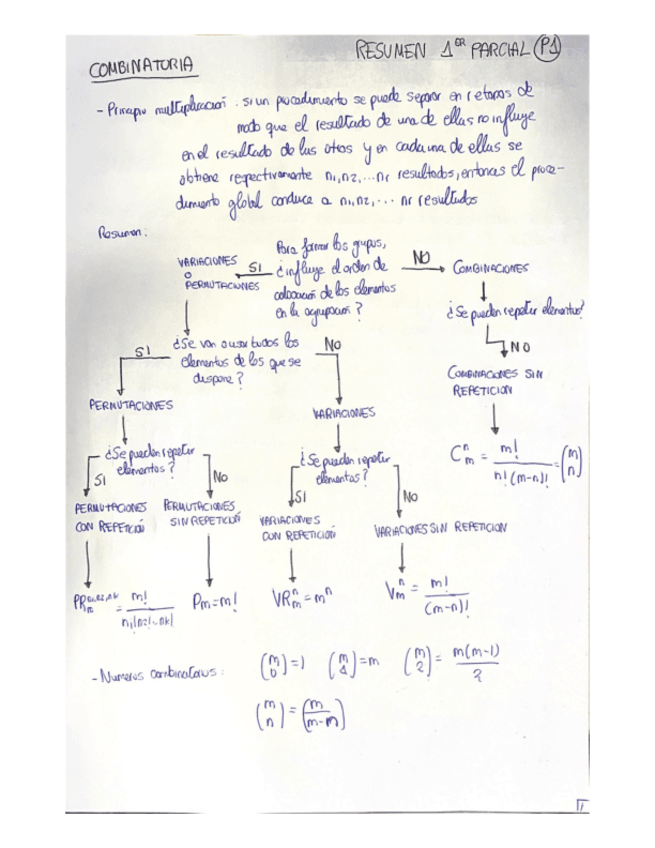 RESUMEN 1ER PARCIAL (P1)
COMBINATORIA
- Principio multiplicación: si un procedimiento se puede separar en r etapas de
modo que el resultado de una de ellas no influye
en el resultado de las otras y en cada una de ellas se
obtiene respectivamente n1, n2, ... nr resultados, entonces el proce-
dimiento global conduce a n1, n2, ... nr resultados
Resumen:
Para formar los grupos,
¿influye el orden de
colocación de los elementos
en la agrupación?
SI
NO
VARIACIONES
O
PERMUTACIONES
COMBINACIONES
¿Se pueden repetir elementos?
NO
COMBINACIONES SIN
REPETICION
C_m^n = m! / n!(m-n)! = (m n)
¿Se van a usar todos los
elementos de los que se
dispone?
SI
NO
PERMUTACIONES
VARIACIONES
¿Se pueden repetir
elementos?
SI
NO
¿Se pueden repetir
elementos?
SI
NO
PERMUTACIONES
CON REPETICIÓN
PERMUTACIONES
SIN REPETICIÓN
VARIACIONES
CON REPETICIÓN
VARIACIONES SIN REPETICION
PR_m = m! / n1!n2!...nk!
Pm = m!
VR_m^n = m^n
V_m^n = m! / (m-n)!
- Numeros combinatorios: (m 0) = 1 (m 1) = m (m 2) = m(m-1) / 2
(m n) = (m / m-n)
1